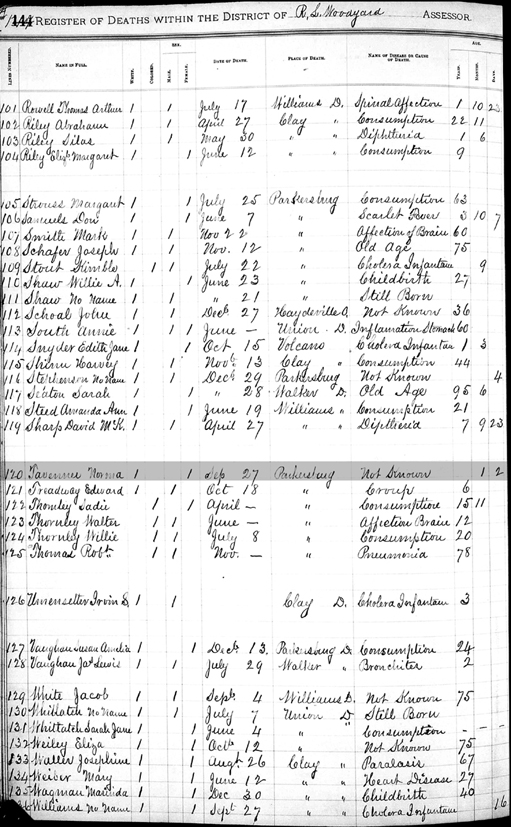 144
REGISTER OF DEATHS WITHIN THE DISTRICT OF R. L. Woodyard ASSESSOR.
SEX. AGE.
LINES NUMBERED. NAME IN FULL. WHITE. COLORED. MALE. FEMALE. DATE OF DEATH. PLACE OF DEATH. NAME OF DISEASE OR CAUSE OF DEATH. YEARS. MONTHS. DAYS.
101 Rowell Thomas Arthur 1 1 July 17 Williams D. Spinal Affection 1 10 23
102 Riley Abraham 1 1 April 27 Clay " Consumption 22 11
103 Riley Silas 1 1 May 30 " " Diptheria 1 6
104 Riley Elizh Margaret 1 1 June 12 " " Consumption 9
105 Strouss Margaret 1 1 July 25 Parkersburg Consumption 63
106 Samuels Don 1 1 June 7 " Scarlet Fever 3 10 7
107 Smith Mark 1 1 Nov 22 " Affection of Brain 60
108 Schafer Joseph 1 1 Nov. 12 " Old Age 75
109 Stout Kimble 1 1 July 22 " Cholera Infantum 9
110 Shaw Willie A. 1 1 June 23 " Childbirth 27
111 Shaw No Name 1 1 " 21 " Still Born
112 School John 1 1 Decb 27 Haydeville O. Not Known 36
113 South Annie 1 1 June — Union D. Inflamation Stomach 60
114 Snyder Edith Jane 1 1 Oct 15 Volcano Cholera Infantum 1 3
115 Shinn Harvey 1 1 Novb 13 Clay " Consumption 44
116 Stephenson No Name 1 1 Decb 29 Parkersburg Not Known 4
117 Seaton Sarah 1 1 " 28 Walker D. Old Age 95 6
118 Steed Amanda Ann 1 1 June 19 Williams " Consumption 21
119 Sharp David McK. 1 1 April 27 " Diptheria 7 9 23
120 Tavenner Norma 1 1 Sep 27 Parkersburg Not Known 1 2
121 Treadway Edward 1 1 Oct 18 " Croup 6
122 Thornley Sadie 1 1 April — " Consumption 15 11
123 Thornley Walter 1 1 June — " Affection Brain 12
124 Thornley Willie 1 1 July 8 " Consumption 20
125 Thomas Robt. 1 1 Nov. — " Pneumonia 78
126 Irvin S. 1 1 Clay D. Cholera Infantum 3
127 Vaughan Susan Amelia 1 1 Decb 13. Parkersburg D. Consumption 24
128 Vaughan Jas Lewis 1 1 July 29 Walker " Bronchites 2
129 White Jacob 1 1 Sepb 4 Williams D. Not Known 75
130 Whitlatch No Name 1 1 July 7 Union D Still Born
131 Whittatch Sarah Jane 1 1 June 4 " " Consumption - - -
132 Weiley Eliza 1 1 Octb 12 " Not Known 75
133 Waller Josephine 1 1 Augt 26 Clay " Paralasis 67
134 Weiser Mary 1 1 June 12 " " Heart Disease 27
135 Wagman Matilda 1 1 Dec 30 " " Childbirth 40
Williams No Name 1 1 Sept 27 " " Cholera Infantum 16